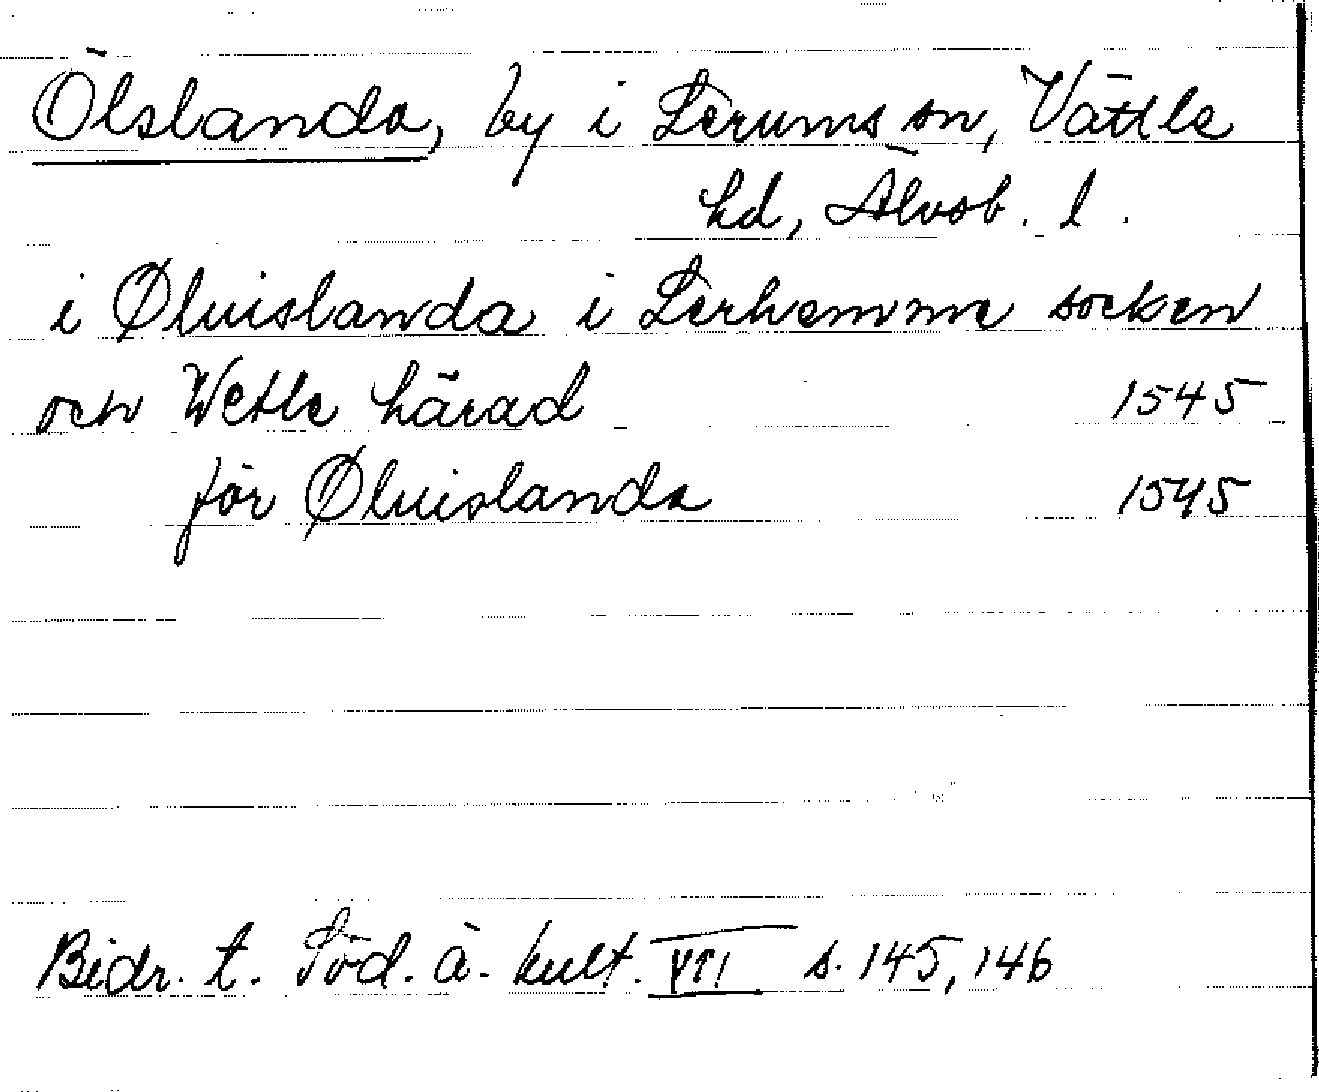 Ölslanda, by i Lerums sn, Vättle
hd, Älvsb. l.
i Øluislanda i Lerhemme socken
och Wetle härad 1545
för Øluislanda 1545
Bidr. t. Söd. ä. kult. VII s. 145, 146